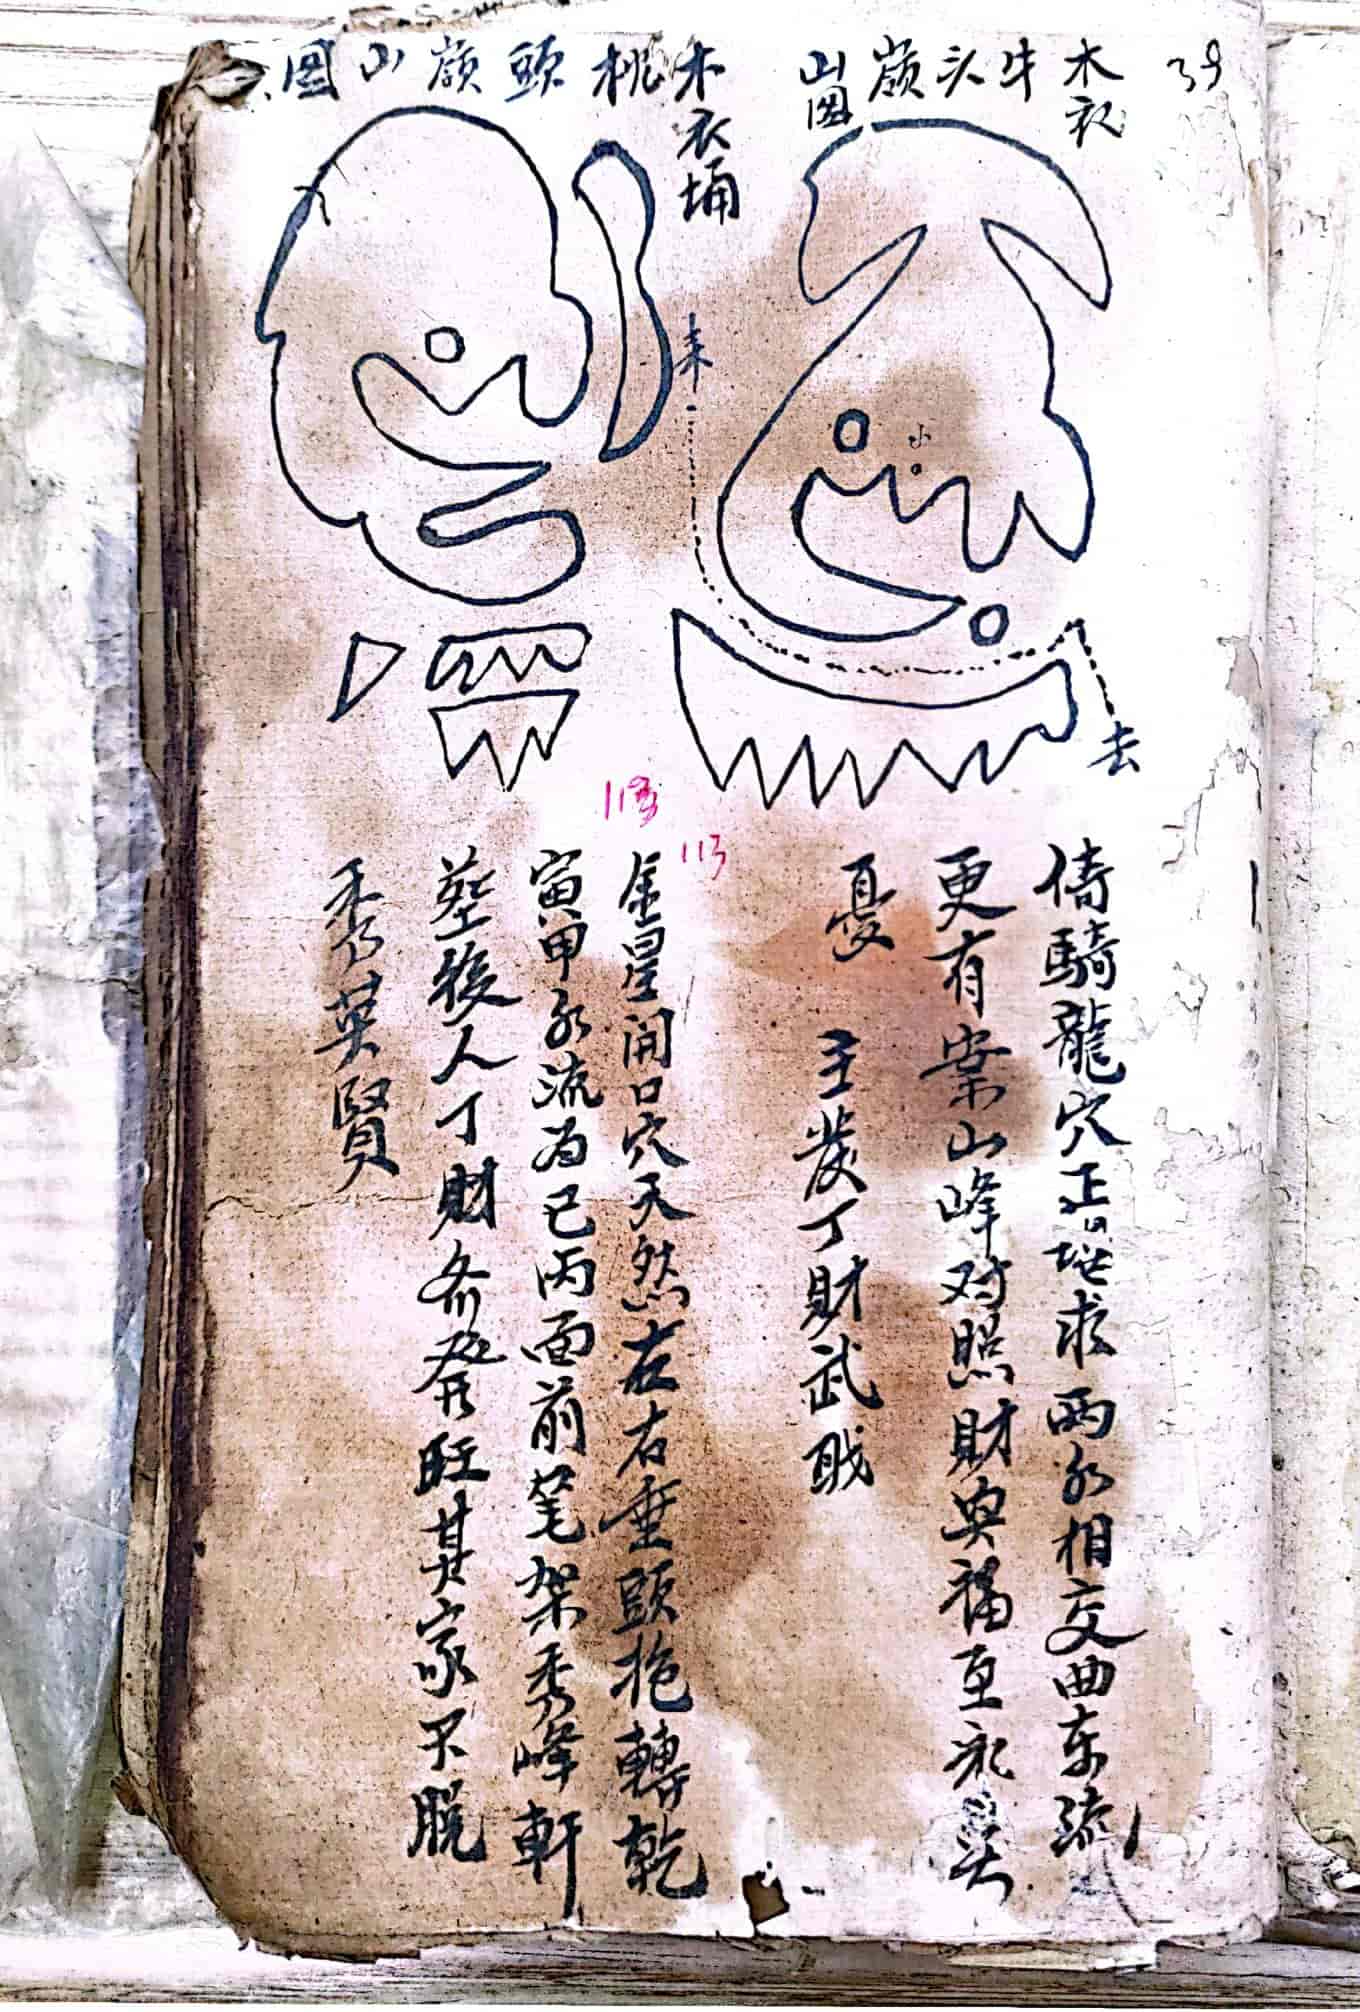 39
木衣牛头嶺山图
来
小
去
倚騎龍穴正堪求两水相交曲东流
更有案山峰对照財與福至永無
憂 主发丁財武戝
木衣埇桃頭嶺山图
113
113
金星開口穴天然左右垂頭抱轉乾
寅甲水流为巳丙面前笔架秀峰軒
塟後人丁財俞發旺其家不脱
秀英賢